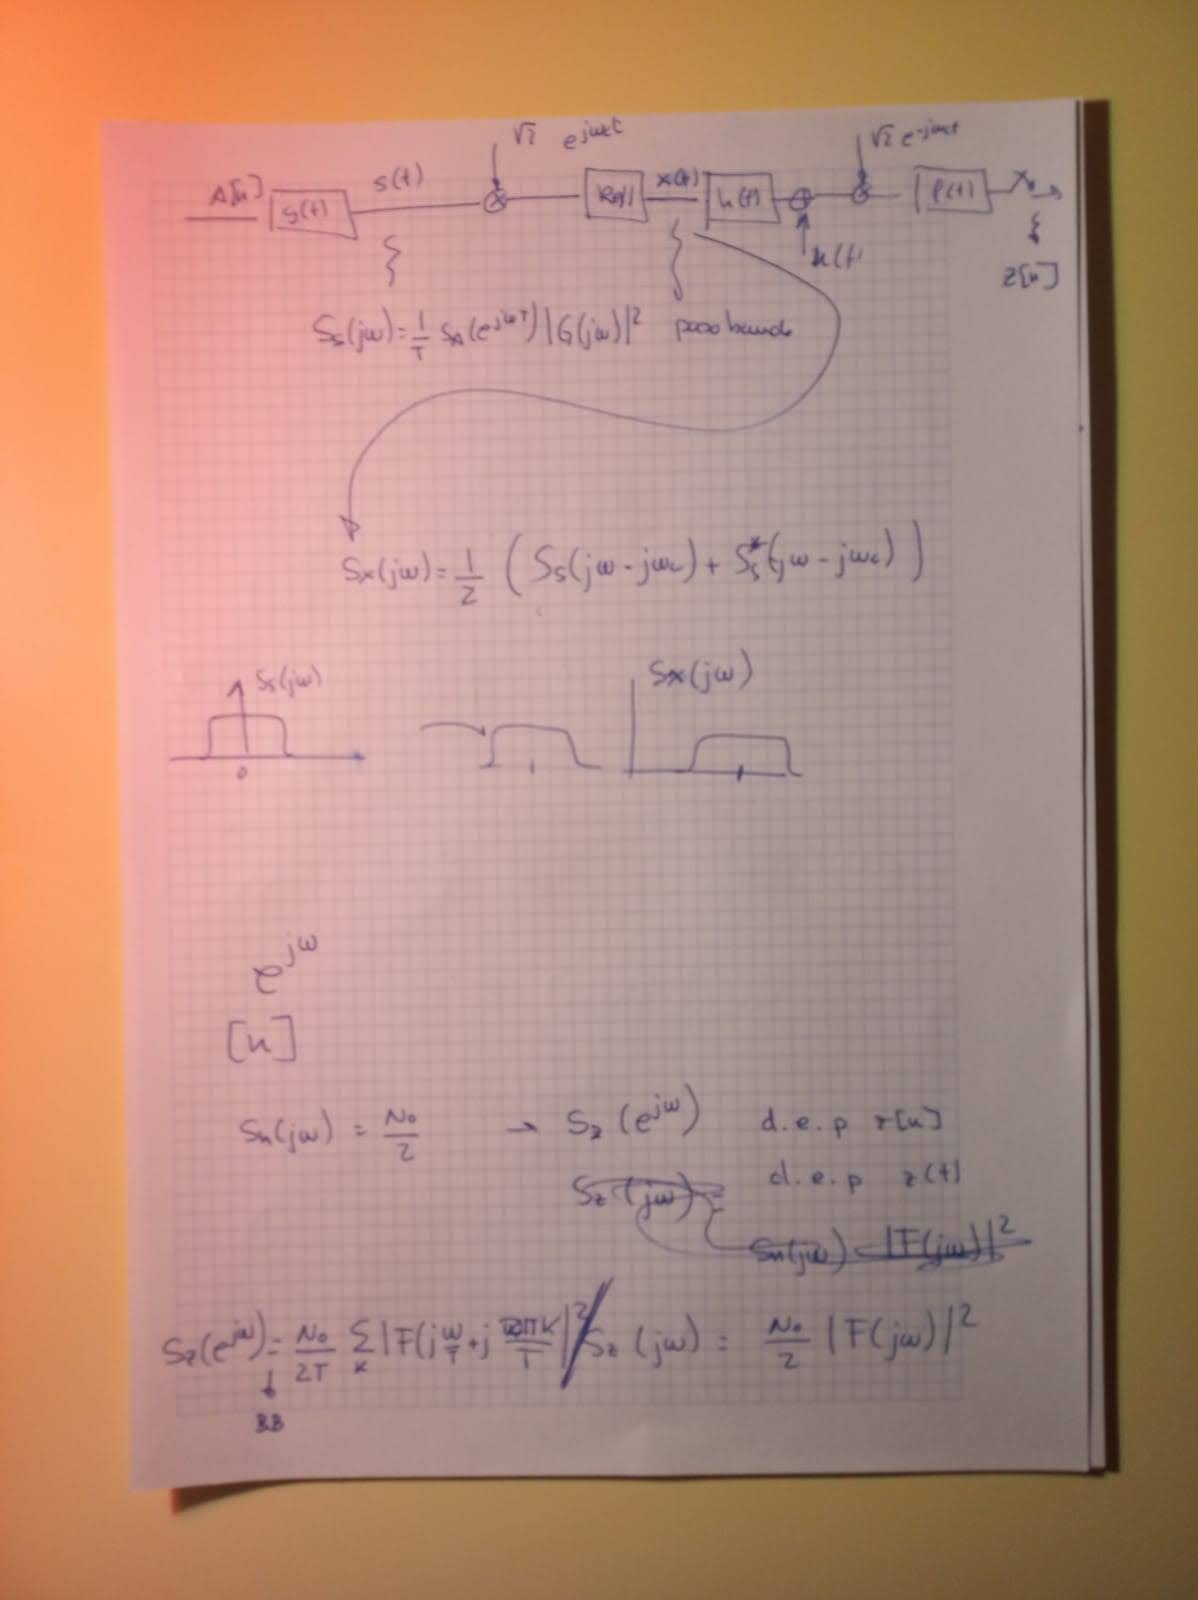 √2 e^jωct √2 e^-jωct
A[n] g(t) s(t) x(t) h(t) f(t)
n(t
z[n]
Ss(jω) = 1/T SA(e^jωT) |G(jω)|² paso banda
Sx(jω) = 1/2 ( Ss(jω - jωc) + Ss*(jω - jωc) )
Ss(jω) Sx(jω)
0
e^jω
[n]
Sn(jω) = No/2 → Sz(e^jω) d.e.p z[n]
Sz(jω) = d.e.p z(t)
Sn(jω) |F(jω)|²
Sz(e^jω) = No/2T Σk |F(j ω/T + j 2πk/T)|² / Sz(jω) = No/2 |F(jω)|²
BB